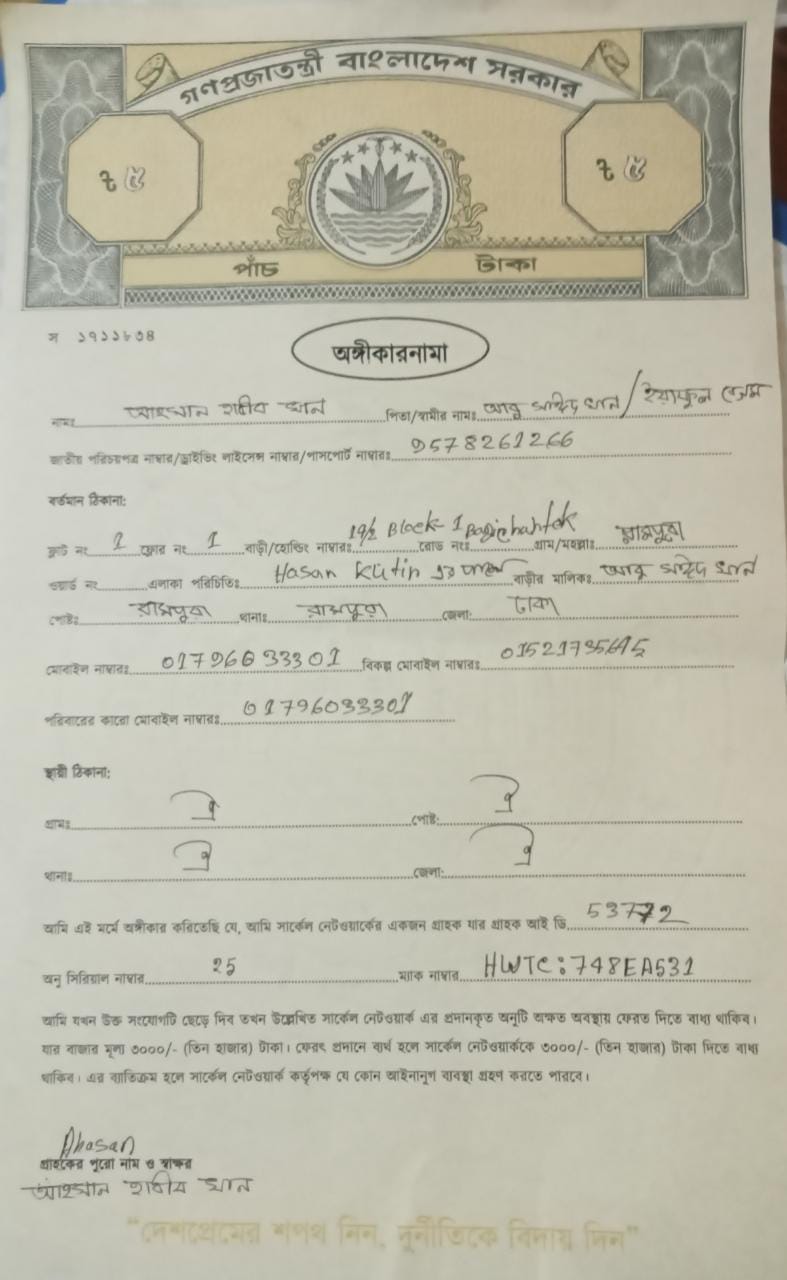 গণপ্রজাতন্ত্রী বাংলাদেশ সরকার
৳ ৫ ৳ ৫
পাঁচ টাকা
স ১৭১১৮৩৪
অঙ্গীকারনামা
নামঃ আহসান হাবীব খান পিতা/স্বামীর নামঃ আবু সাঈদ খান/
জাতীয় পরিচয়পত্র নাম্বার/ড্রাইভিং লাইসেন্স নাম্বার/পাসপোর্ট নাম্বারঃ 9578261266
বর্তমান ঠিকানা:
ফ্লাট নং 1 ফ্লোর নং 1 বাড়ী/হোল্ডিং নাম্বারঃ 19/2 Block-1 রোড নং গ্রাম/মহল্লাঃ রামপুরা
ওয়ার্ড নং এলাকা পরিচিতিঃ Hasan বাড়ীর মালিকঃ আবু সাঈদ খান
পোষ্টঃ রামপুরা থানাঃ রামপুরা জেলা: ঢাকা
মোবাইল নাম্বারঃ 01796033301 বিকল্প মোবাইল নাম্বারঃ
পরিবারের কারো মোবাইল নাম্বারঃ 01796033301
স্থায়ী ঠিকানা:
গ্রামঃ ঐ পোষ্ট: ঐ
থানাঃ ঐ জেলা: ঐ
আমি এই মর্মে অঙ্গীকার করিতেছি যে, আমি সার্কেল নেটওয়ার্কের একজন গ্রাহক যার গ্রাহক আই ডি 53772
অনু সিরিয়াল নাম্বার 25 ম্যাক নাম্বার HWTC:748EA531
আমি যখন উক্ত সংযোগটি ছেড়ে দিব তখন উল্লেখিত সার্কেল নেটওয়ার্ক এর প্রদানকৃত অনুটি অক্ষত অবস্থায় ফেরত দিতে বাধ্য থাকিব।
যার বাজার মূল্য ৩০০০/- (তিন হাজার) টাকা। ফেরৎ প্রদানে ব্যর্থ হলে সার্কেল নেটওয়ার্ককে ৩০০০/- (তিন হাজার) টাকা দিতে বাধ্য
থাকিব। এর ব্যতিক্রম হলে সার্কেল নেটওয়ার্ক কর্তৃপক্ষ যে কোন আইনানুগ ব্যবস্থা গ্রহণ করতে পারবে।
Ahasan
গ্রাহকের পুরো নাম ও স্বাক্ষর
আহসান হাবীব খান
"দেশপ্রেমের শপথ নিন, দুর্নীতিকে বিদায় দিন"